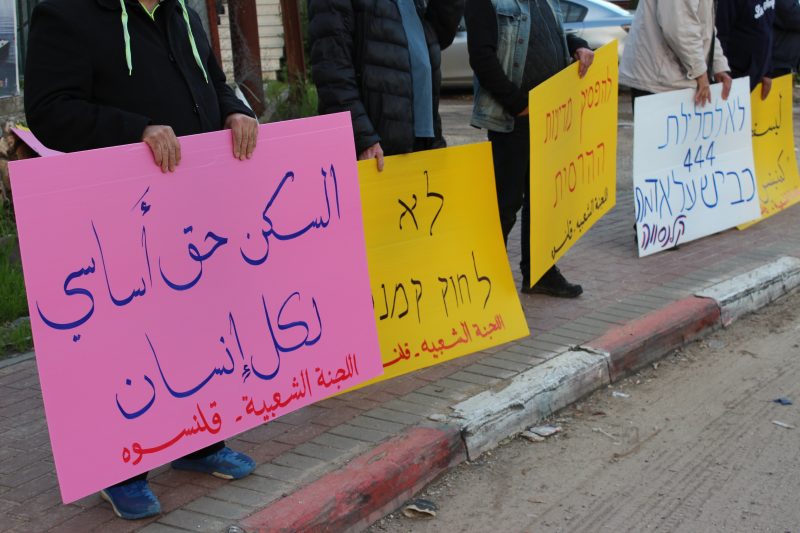 السكن حق أساسي
لكل إنسان
اللجنة الشعبية - قلنسوه
לא
לחוק קמנ
اللجنة الشعبيه - قلنس
להפסיק מדינות
ההרסית
اللجنة الشعبية - قلنسوه
לא לסלילת
444
כביש על אדמת
קלנסווה